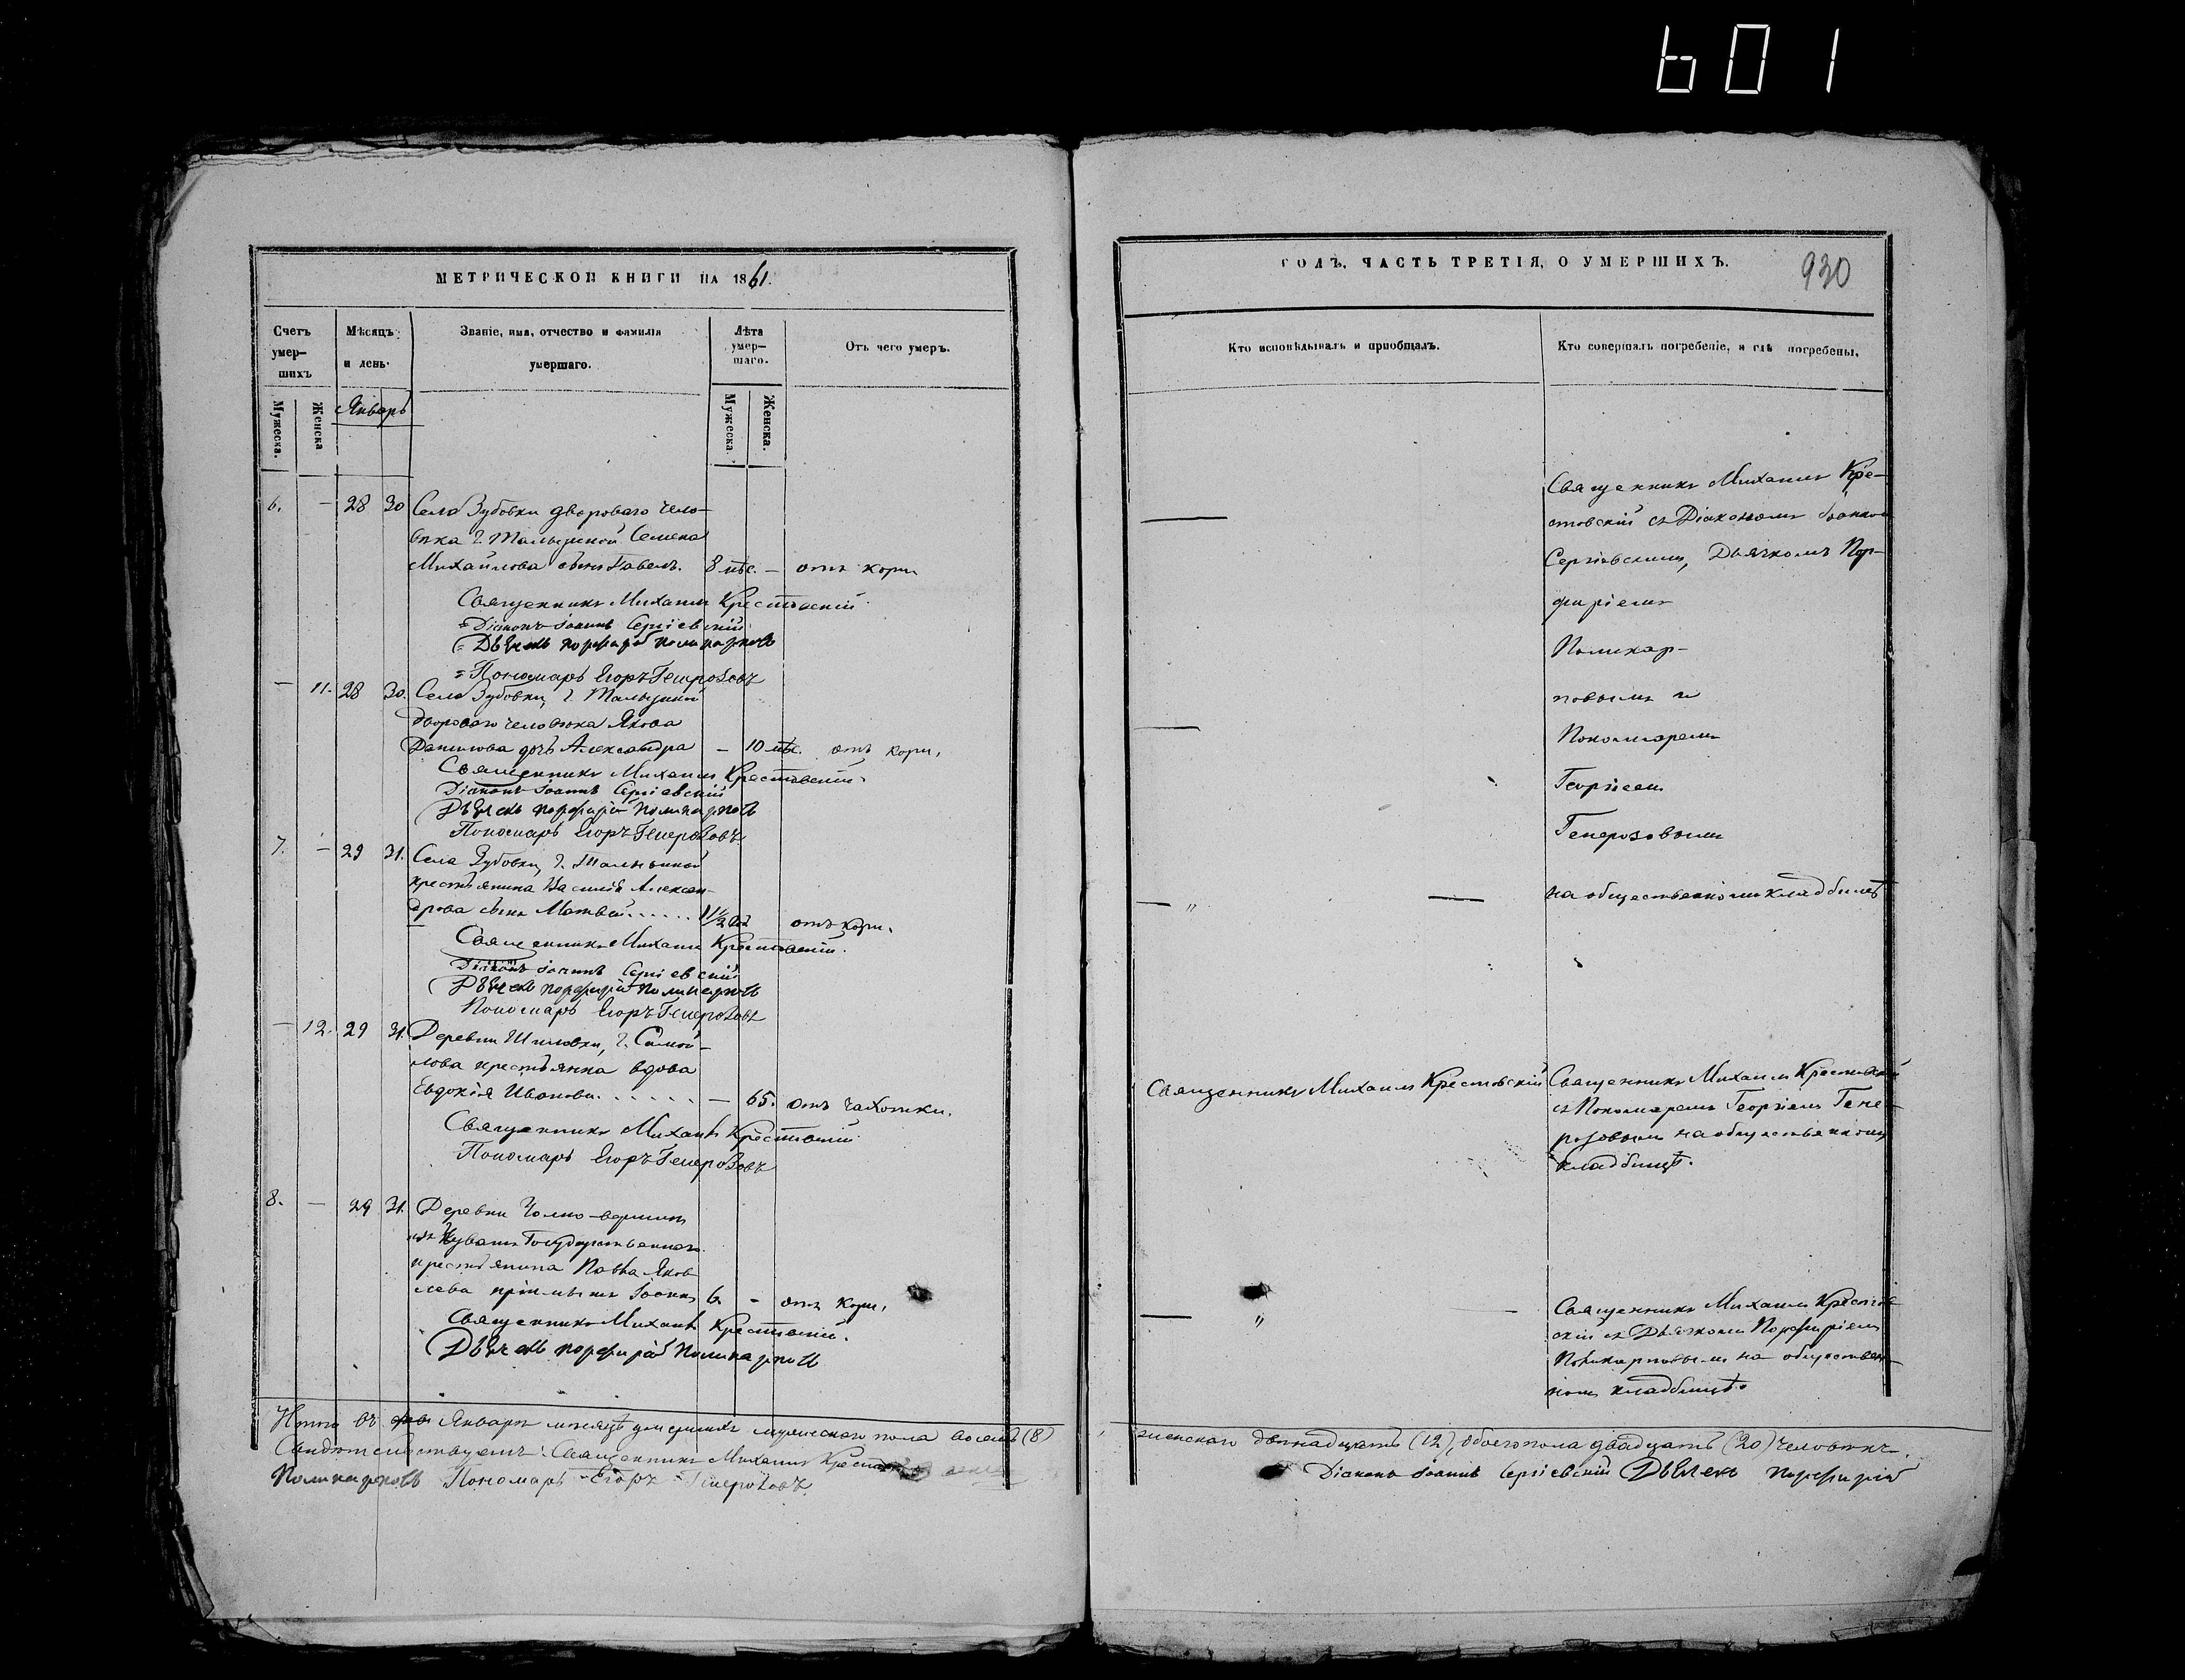 601
МЕТРИЧЕСКОЙ КНИГИ НА 1861.
Счетъ умер-шихъ
Мѣсяцъ и день.
Званіе, имя, отчество и фамилія умершаго.
Лѣта умер-шаго.
Отъ чего умеръ.
Мужеска.
Женска
Январь
Мужеска.
Женска.
6. — 28 30 Села Зубовки двороваго чело-
вѣка г. Тальузиной Семена
Михайлова сынъ Павелъ. 8 мѣс. — отъ кори
Священникъ Михаилъ Крестовскій.
Діаконъ Іоаннъ Сергіевскій
Дьячекъ Порфирій Поликарповъ
Пономарь Егоръ Генерозовъ
— 11. 28 30. Села Зубовки, г.
двороваго человѣка Якова
Данилова дочь Александра — 10 мѣс. отъ кори,
Священникъ Михаилъ Крестовскій.
Діаконъ Іоаннъ Сергіевскій
Дьячекъ Порфирій Поликарповъ
Пономарь Егоръ Генерозовъ
7. — 29 31. Села Зубовки, г.
крестьянина Василія Алексан-
дрова сынъ Матвей...... 1 1/2 отъ кори.
Священникъ Михаилъ Крестовскій.
Діаконъ Іоаннъ Сергіевскій
Дьячекъ Порфирій Поликарповъ
Пономарь Егоръ Генерозовъ
— 12. 29 31. Деревни Шиловки, г. Самой-
лова крестьянка вдова
Евдокія Иванова...... — 65. отъ чахотки.
Священникъ Михаилъ Крестовскій
Пономарь Егоръ Генерозовъ
8. — 29 31. Деревни Чолно-вершинъ
изъ Чувашъ Государственнаго
крестьянина Павла Яков-
лева Іоаннъ 6. - отъ кори,
Священникъ Михаилъ Крестовскій.
Дьячекъ Порфирій Поликарповъ
Итого въ Январѣ мѣсяцѣ умершихъ мужескаго пола восемь (8)
Свидѣтельствуемъ: Священникъ Михаилъ
Поликарповъ Пономарь Егоръ Генерозовъ
ГОДЪ, ЧАСТЬ ТРЕТІЯ, О УМЕРШИХЪ.
930
Кто исповѣдывалъ и пріобщалъ.
Кто совершалъ погребеніе, и гдѣ погребены.
Священникъ Михаилъ Кре-
стовскій съ Діакономъ Іоанномъ
Сергіевскимъ, Дьячкомъ Пор-
фиріемъ
Поликар-
повымъ и
Пономаремъ
Георгіемъ
Генерозовымъ
на общественномъ кладбищѣ
Священникъ Михаилъ Крестовскій
Священникъ Михаилъ Крестовскій
съ Пономаремъ Георгіемъ Гене-
розовымъ на общественномъ
кладбищѣ.
Священникъ Михаилъ Крестов-
скій съ Дьячкомъ Порфиріемъ
Поликарповымъ на обществен-
номъ кладбищѣ.
женскаго двенадцать (12), обоего пола двадцать (20) человѣкъ.
Діаконъ Іоаннъ Сергіевскій Дьячекъ Порфирій